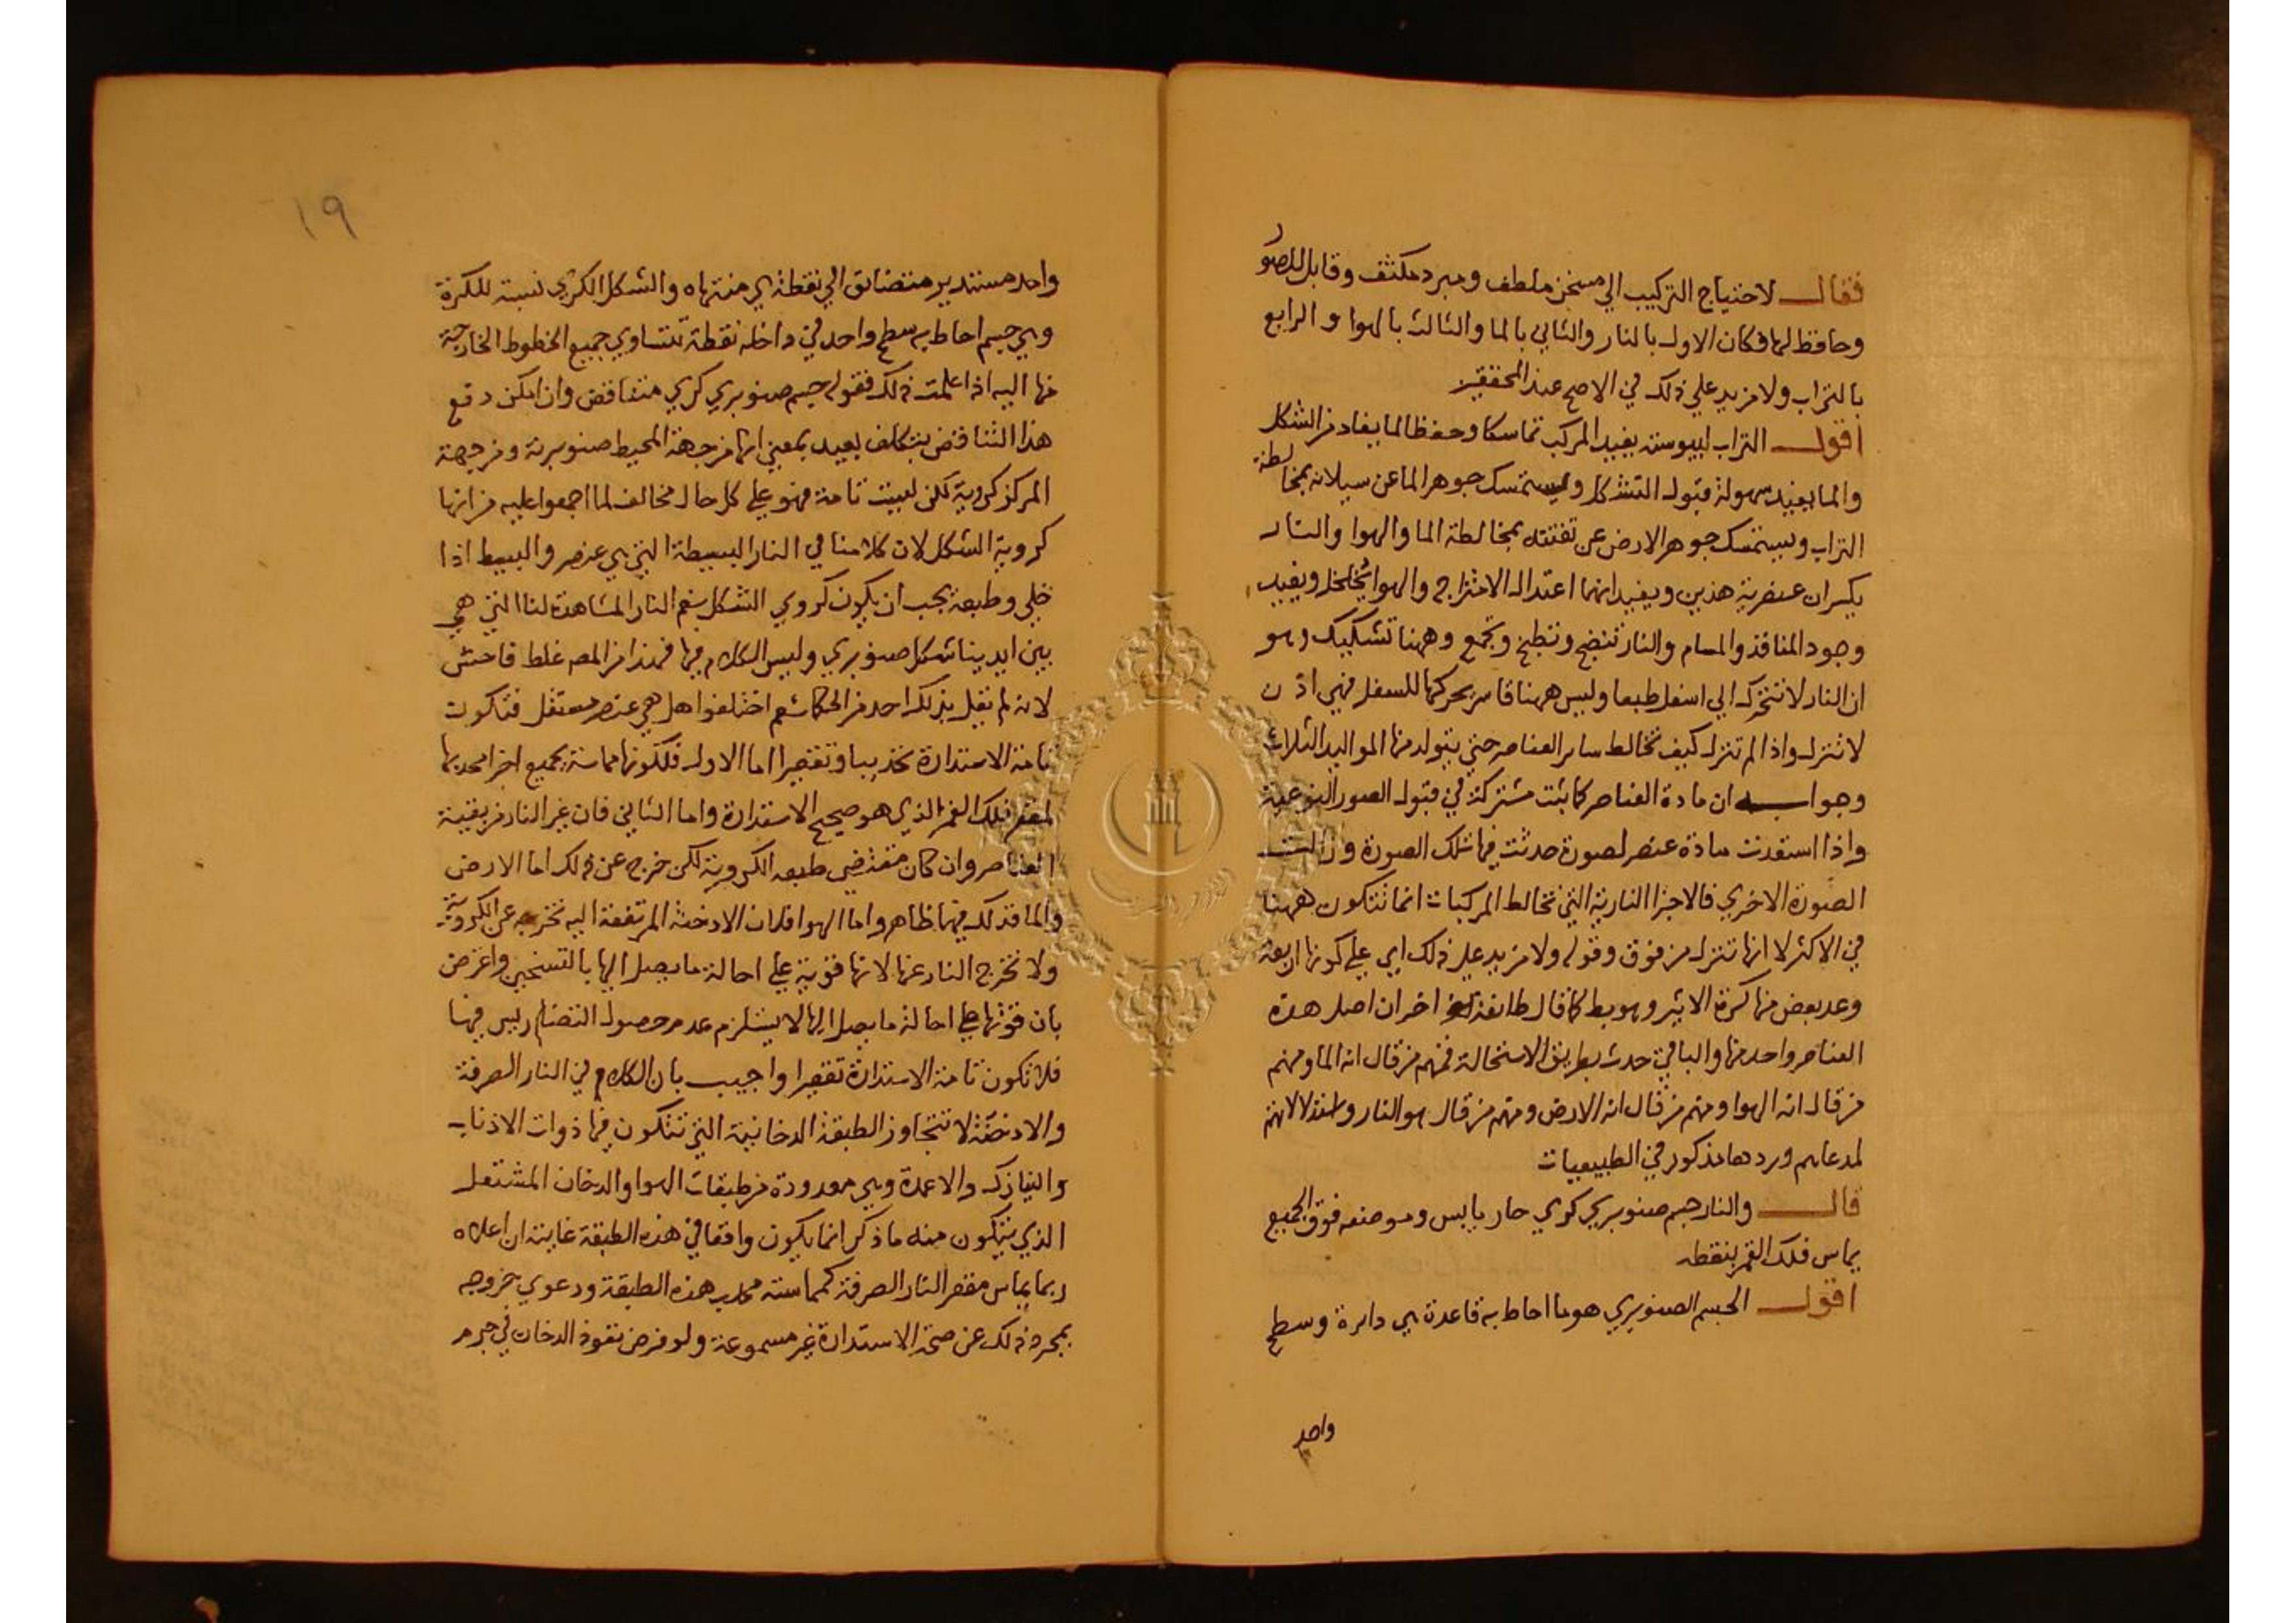 فقال لاحتياج التركيب الي مسخن ملطف ومبرد مكثف وقابل للصور
وحافظ لها فكان الاول بالنار والثاني بالما والثالث بالهوا والرابع
بالتراب ولا مزيد علي ذلك في الاصح عند المحققين
اقول التراب ليبوسته يفيد المركب تماسكا وحفظا لما يفاد من الشكل
والما يفيد سهولة قبول التشكل ويستمسك جوهر الما عن سيلانه بمخالطة
التراب ويستمسك جوهر الارض عن تفتته بمخالطة الما والهوا والنار
يكسران عنصرية هذين ويفيدانهما اعتدال الامتزاج والهوا يخلخل ويفيد
وجود المنافذ والمسام والنار تنضج وتطبخ وتجمع وههنا تشكيك وهو
ان النار لا تتحرك الي اسفل طبعا وليس ههنا قاسر يحركها للسفل فهي اذن
لا تنزل واذا لم تنزل كيف تخالط ساير العناصر حتي يتولد منها المواليد الثلاث
وجوابه ان مادة العناصر كانت مشتركة في قبول الصور النوعية
واذا استعدت مادة عنصر لصورة حدثت فيها تلك الصورة وزالت
الصورة الاخري فالاجزا النارية التي تخالط المركبات انما تتكون ههنا
في الاكثر لا انها تنزل من فوق وقوله ولا مزيد علي ذلك اي علي كونها اربعة
وعد بعض منها كرة الاثير وهو بط كما قال طائفة اخر ان اصل هذه
العناصر واحد منها والباقي حدث بطريق الاستحالة فمنهم من قال انه الما ومنهم
من قال انه الهوا ومنهم من قال انه الارض ومنهم من قال هو النار واستدلالاتهم
لمدعاهم وردها مذكور في الطبيعيات
قال والنار جسم صنوبري كري حار يابس وموضعه فوق الجميع
يماس فلك القمر بنقطه
اقول الجسم الصنوبري هو ما احاط به قاعدة هي دايرة وسطح
واحد
١٩
واحد مستدير متضائق الي نقطة هي منتهاه والشكل الكري نسبة للكرة
وهي جسم احاط به سطح واحد في داخله نقطة تتساوي جميع الخطوط الخارجة
منها اليه اذا علمت ذلك فقوله جسم صنوبري كري متناقض وان امكن دفع
هذا التناقض بتكلف بعيد بمعني انها من جهة المحيط صنوبرية ومن جهة
المركز كروية لكن ليست تامة فهو علي كل حال مخالف لما اجمعوا عليه من انها
كروية الشكل لان كلامنا في النار البسيطة التي هي عنصر والبسيط اذا
خلي وطبعه يجب ان يكون كروي الشكل نعم النار المشاهدة لنا التي هي
بين ايدينا شكل صنوبري وليس الكلام فيها فهذا من المص غلط فاحش
لانه لم يقل بذلك احد من الحكما نعم اختلفوا هل هي عنصر مستقل فتكون
تامة الاستدارة تحديبا وتقعيرا اما الاول فلكونها مماسة بجميع اجزا محدبها
لمقعر فلك القمر الذي هو صحيح الاستدارة واما الثاني فان غير النار من بقية
العناصر وان كان مقتضي طبعه الكروية لكن خرج عن ذلك اما الارض
والما فذلك فيهما ظاهر واما الهوا فلان الادخنة المرتفعة اليه تخرجه عن الكروية
ولا تخرج النار عنها لانها قوية علي احالة ما يصل اليها بالتسخين واعترض
بان قوتها علي احالة ما يصل اليها لا يستلزم عدم حصول التضاريس فيها
فلا تكون تامة الاستدارة تقعيرا واجيب بان الكلام في النار الصرفة
والادخنة لا تتجاوز الطبقة الدخانية التي تتكون فيها ذوات الاذناب
والنيازك والاعمدة وهي معدودة من طبقات الهوا والدخان المشتعل
الذي يتكون منه ما ذكر انما يكون واقفا في هذه الطبقة غايته ان اعلاه
ربما يماس مقعر النار الصرفة كمماسته محدب هذه الطبقة ودعوي خروجه
بمجرد ذلك عن صحة الاستدارة غير مسموعة ولو فرض نفوذ الدخان في جرم